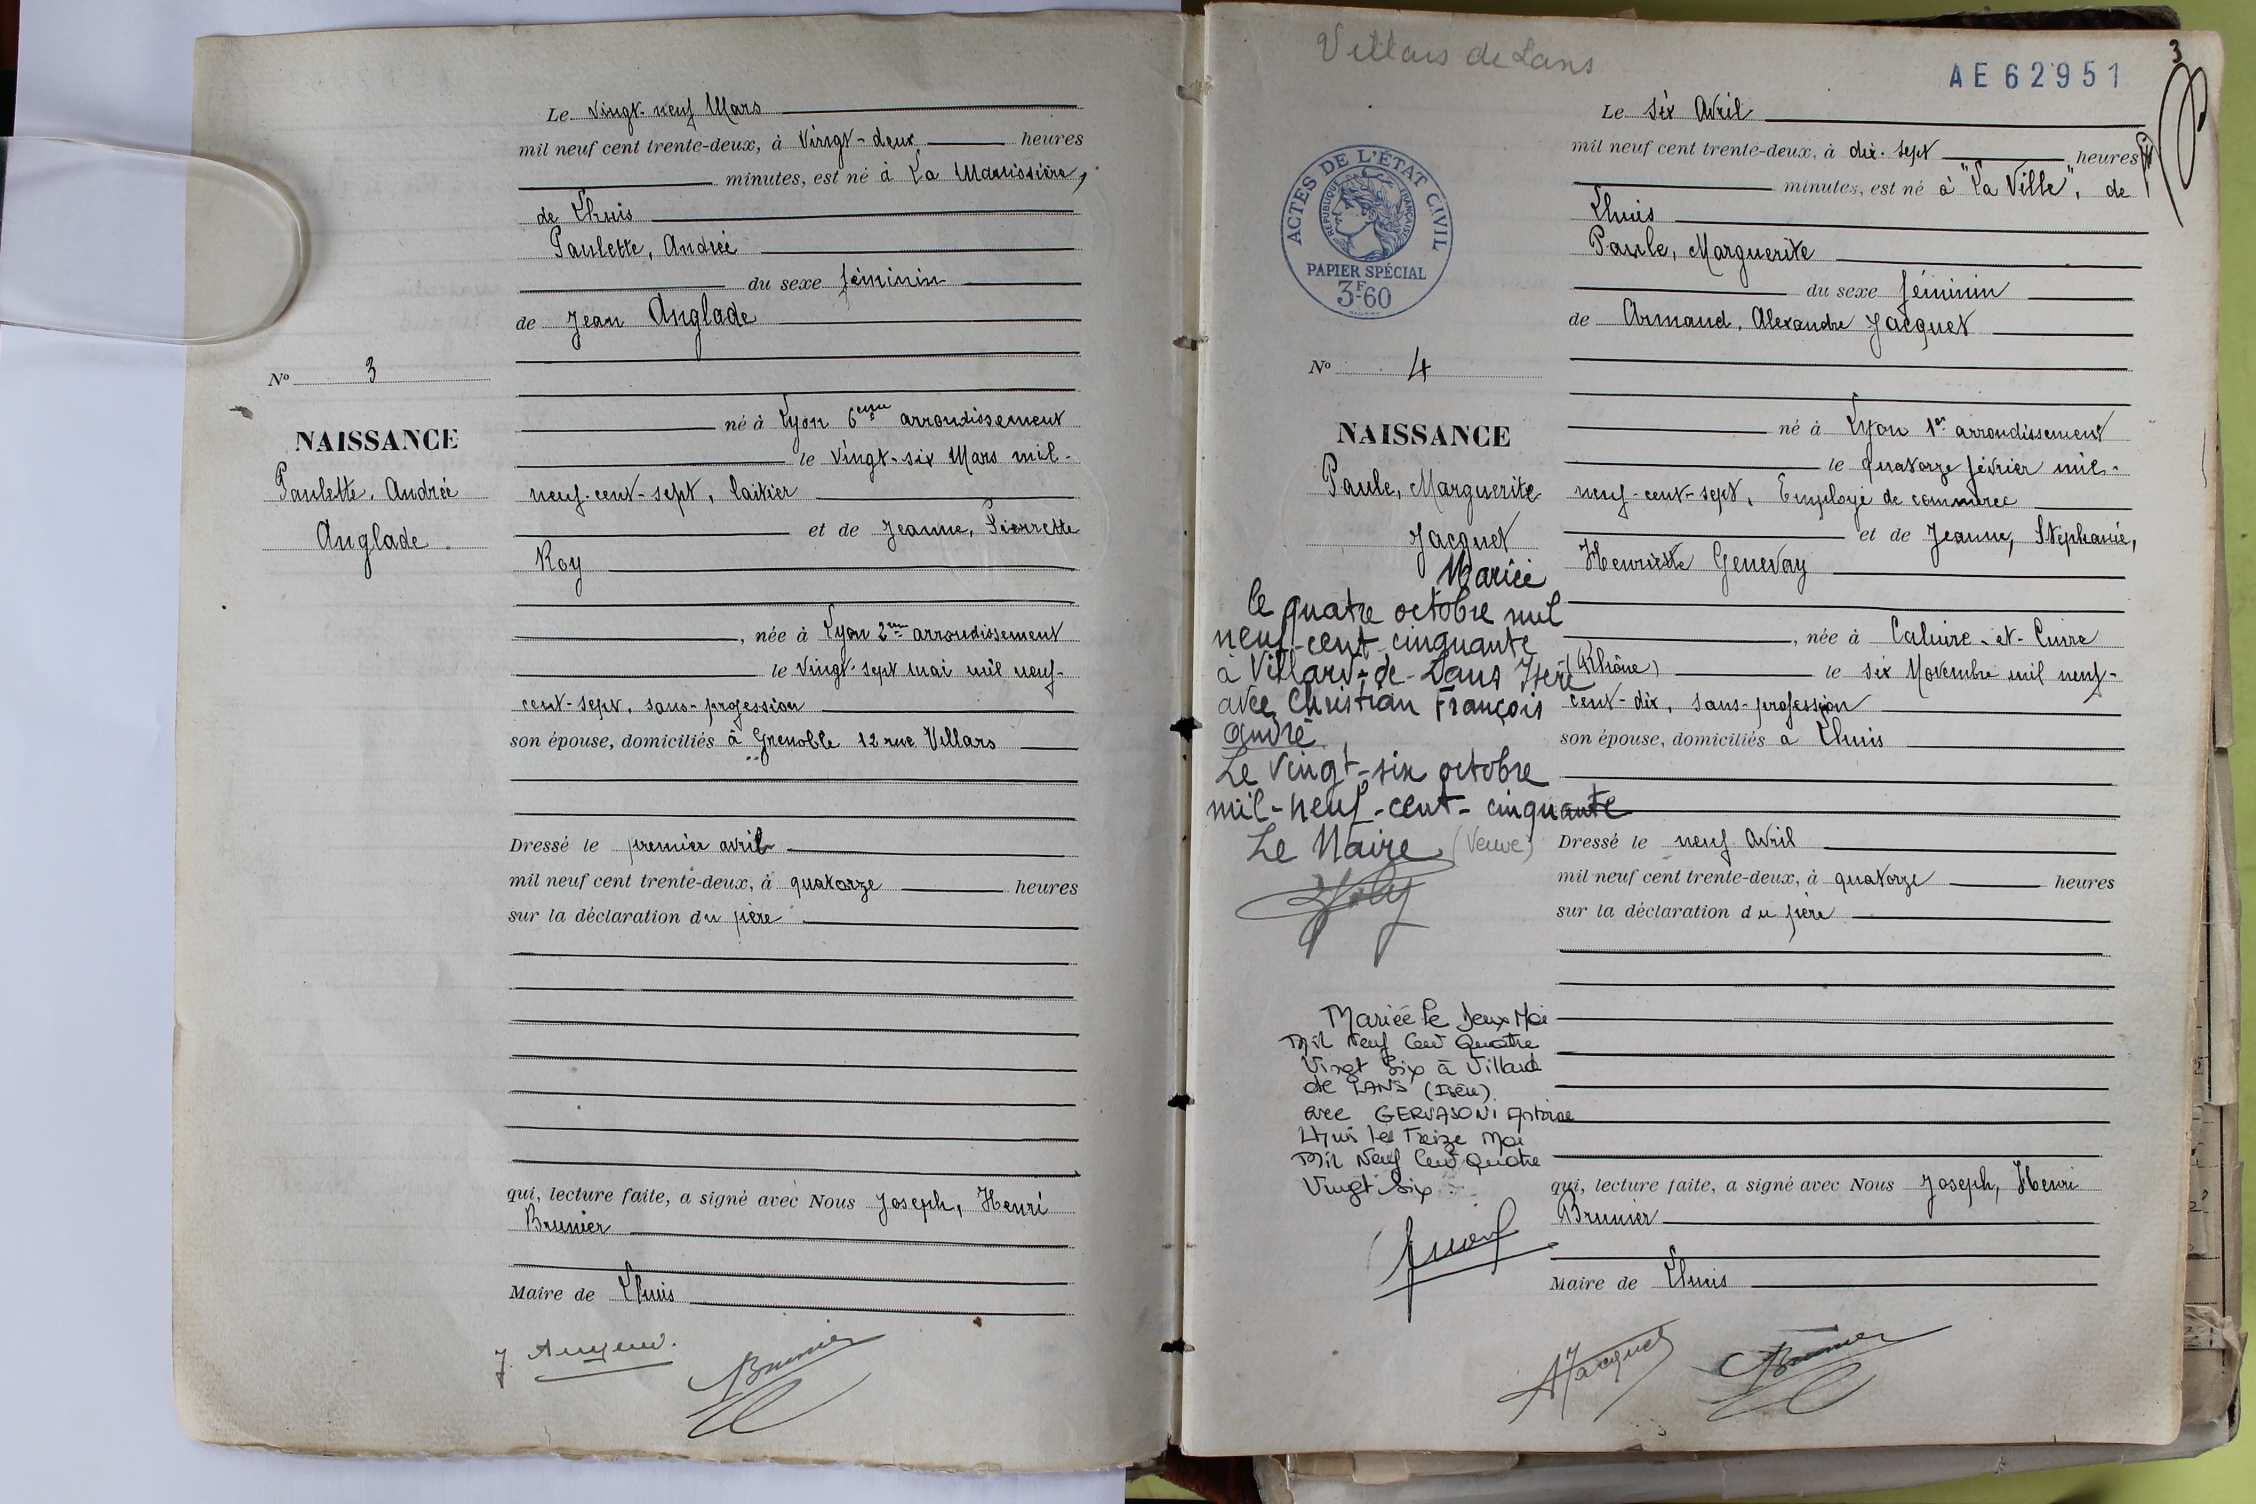 Le vingt-neuf Mars
mil neuf cent trente-deux, à vingt-deux heures
minutes, est né à La
de Lhuis
Paulette, Andrée
du sexe féminin
de Jean Anglade
né à Lyon 6eme arrondissement
le vingt-six Mars mil-
neuf-cent-sept, laitier
et de Jeanne, Pierrette
Roy
, née à Lyon 2me arrondissement
le vingt-sept mai mil neuf-
cent-sept, sans-profession
son épouse, domiciliés à Grenoble 12 rue Villars
Dressé le premier avril
mil neuf cent trente-deux, à quatorze heures
sur la déclaration du père
qui, lecture faite, a signé avec Nous Joseph, Henri
Brunier
Maire de Lhuis
Brunier
No 3
NAISSANCE
Paulette, Andrée
Anglade
Villars de Lans
AE62951
3
ACTES DE L'ÉTAT CIVIL
RÉPUBLIQUE FRANÇAISE
PAPIER SPÉCIAL
3F60
No 4
NAISSANCE
Paule, Marguerite
Jacquet
Mariée
le quatre octobre mil
neuf-cent cinquante
à Villard-de-Lans Isère
avec Christian François
André
Le vingt-six octobre
mil-neuf-cent-cinquante
Le Maire (Veuve)
Joly
Mariée le Deux Mai
Mil Neuf Cent Quatre
Vingt Six à Villard
de LANS (Isère)
avec GERVASONI Antoine
Lhuis le Treize Mai
Mil Neuf Cent Quatre
Vingt Six
Le six Avril
mil neuf cent trente-deux, à dix-sept heures
minutes, est né à "La Ville", de
Lhuis
Paule, Marguerite
du sexe féminin
de Armand, Alexandre Jacquet
né à Lyon 1er arrondissement
le quatorze février mil-
neuf-cent-sept, Employé de commerce
et de Jeanne, Stephanie,
Henriette Genevay
, née à Caluire-et-Cuire
(Rhône) le six Novembre mil neuf-
cent-dix, sans-profession
son épouse, domiciliés à Lhuis
Dressé le neuf Avril
mil neuf cent trente-deux, à quatorze heures
sur la déclaration du père
qui, lecture faite, a signé avec Nous Joseph, Henri
Brunier
Maire de Lhuis
AJacquet
Brunier